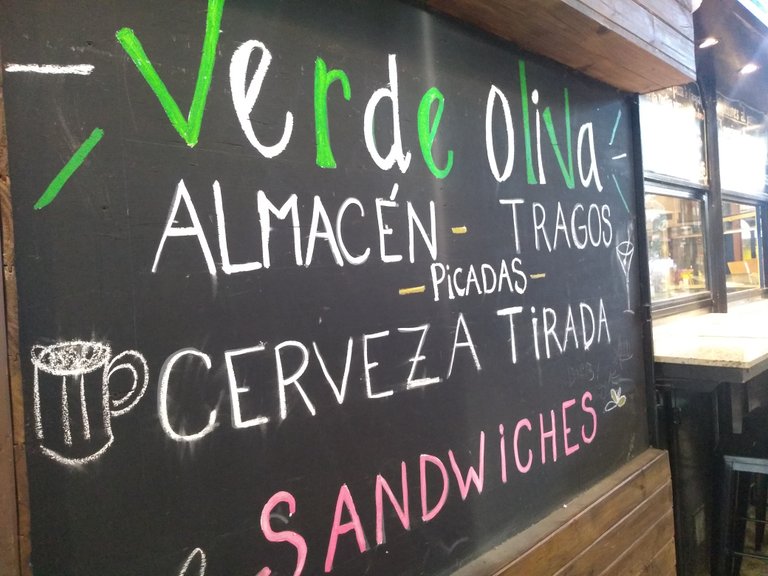 Verde Oliva
ALMACÉN - TRAGOS
- PiCADAS -
CERVEZA TiRADA
SANDWiCHES